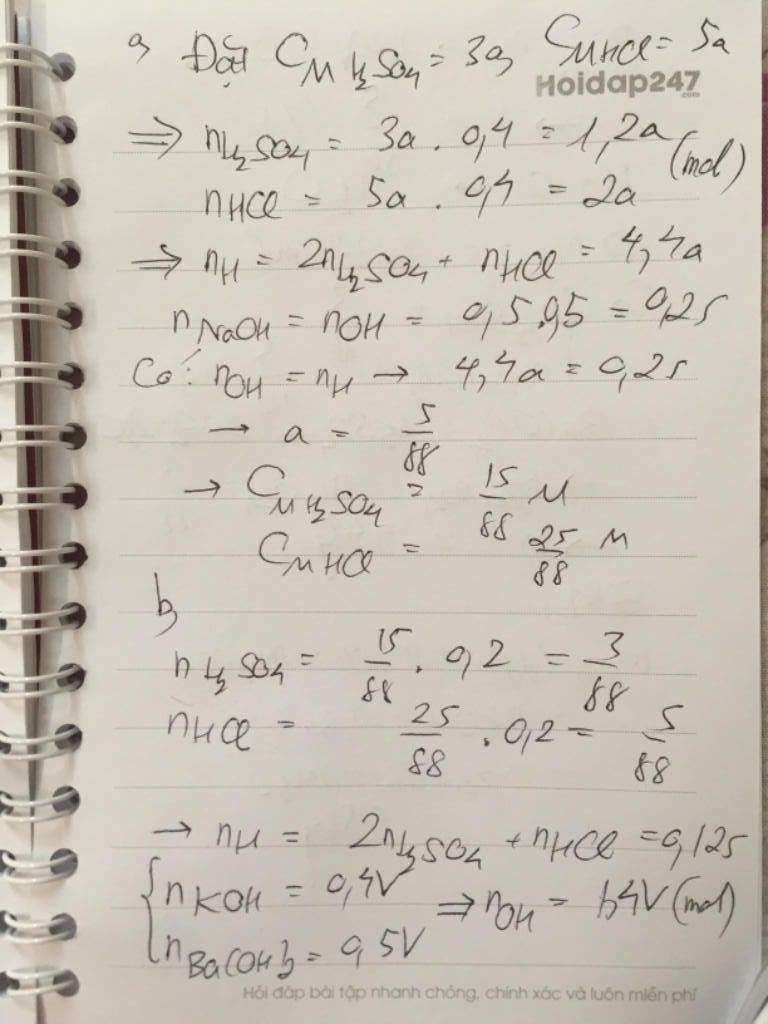 a, Đặt CM H2SO4 = 3a, CM HCl = 5a
Hoidap247
.com
⇒ nH2SO4 = 3a . 0,4 = 1,2a
(mol)
nHCl = 5a . 0,4 = 2a
⇒ nH = 2nH2SO4 + nHCl = 4,4a
nNaOH = nOH = 0,5.0,5 = 0,25
Có: nOH = nH → 4,4a = 0,25
→ a = 5/88
→ CM H2SO4 = 15/88 M
CM HCl = 25/88 M
b,
nH2SO4 = 15/88 . 0,2 = 3/88
nHCl = 25/88 . 0,2 = 5/88
→ nH = 2nH2SO4 + nHCl = 0,125
{ nKOH = 0,4V ⇒ nOH = 1,4V (mol)
nBa(OH)2 = 0,5V
Hỏi đáp bài tập nhanh chóng, chính xác và luôn miễn phí